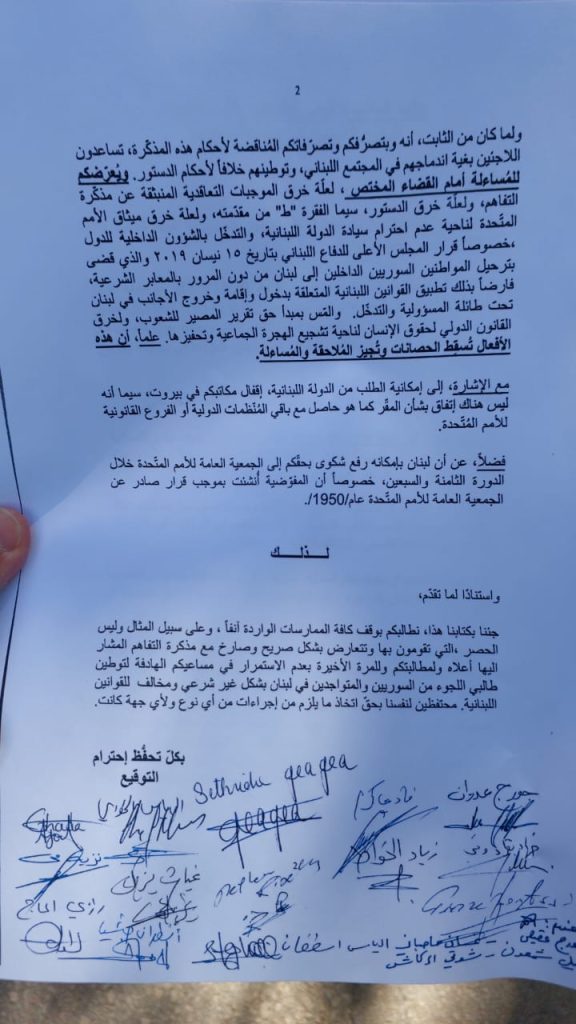 2
ولما كان من الثابت، أنه وبتصرُّفكم وتصرّفاتكم المُناقضة لأحكام هذه المذكّرة، تساعدون
اللاجئين بغية اندماجهم في المجتمع اللبناني، وتوطينهم خلافاً لأحكام الدستور. ويُعرّضكم
للمُساءلة أمام القضاء المختص ، لعلّة خرق الموجبات التعاقدية المنبثقة عن مذكّرة
التفاهم، ولعلّة خرق الدستور، سيما الفقرة "ط" من مقدّمته، ولعلة خرق ميثاق الأمم
المتّحدة لناحية عدم احترام سيادة الدولة اللبنانية، والتدخّل بالشؤون الداخلية للدول
،خصوصاً قرار المجلس الأعلى للدفاع اللبناني بتاريخ ١٥ نيسان ٢٠١٩ والذي قضى
بترحيل المواطنين السوريين الداخلين إلى لبنان من دون المرور بالمعابر الشرعية،
فارضاً بذلك تطبيق القوانين اللبنانية المتعلقة بدخول وإقامة وخروج الأجانب في لبنان
تحت طائلة المسؤولية والتدخّل. والمَس بمبدأ حق تقرير المصير للشعوب، ولخرق
القانون الدولي لحقوق الإنسان لناحية تشجيع الهجرة الجماعية وتحفيزها. علماً، أن هذه
الأفعال تُسقِط الحصانات وتُجيز المُلاحقة والمُساءلة.
مع الإشارة، إلى إمكانية الطلب من الدولة اللبنانية، إقفال مكاتبكم في بيروت، سيما أنه
ليس هناك إتفاق بشأن المقّر كما هو حاصل مع باقي المُنظمات الدولية أو الفروع القانونية
للأمم المُتّحدة.
فضلاً، عن أن لبنان بإمكانه رفع شكوى بحقّكم إلى الجمعية العامة للأمم المتّحدة خلال
الدورة الثامنة والسبعين، خصوصاً أن المفوّضية أنشئت بموجب قرار صادر عن
الجمعية العامة للأمم المتّحدة عام/1950/.
لـــذلـــك
واستنادًا لما تقدّم،
جئنا بكتابنا هذا، نطالبكم بوقف كافة الممارسات الواردة آنفاً ، وعلى سبيل المثال وليس
الحصر ،التي تقومون بها وتتعارض بشكل صريح وصارخ مع مذكرة التفاهم المشار
اليها أعلاه ولمطالبتكم وللمرة الأخيرة بعدم الاستمرار في مساعيكم الهادفة لتوطين
طالبي اللجوء من السوريين والمتواجدين في لبنان بشكل غير شرعي ومخالف للقوانين
اللبنانية. محتفظين لنفسنا بحقّ اتخاذ ما يلزم من إجراءات من أي نوع ولأي جهة كانت.
بكلّ تحفُّظ إحترام
التوقيع
Sethrida geagea
جورج عدوان
geagea
زياد الحواط
غياث يزبك
رازي الحاج
الياس اسطفان
شوقي الدكاش